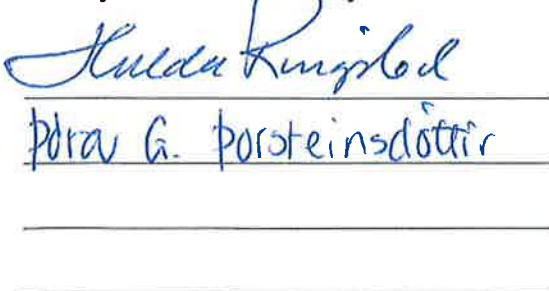 Hulda Ringsted
Þóra G. Þorsteinsdóttir